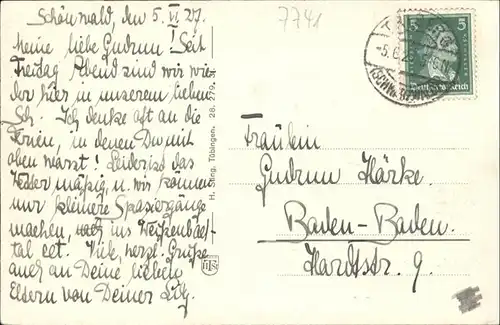 Schönwald, den 5. VI. 27.
7741
Meine liebe Gudrun! Seit
Freitag Abend sind wir wie-
der hier in unserem lieben
Sch. Ich denke oft an die
Ferien, in denen Du mit
oben warst! Leider ist das
Wetter mäßig, u. wir können
nur kleinere Spaziergänge
machen, ins Weißenbach-
tal ect. Viele, herzl. Grüße
auch an Deine lieben
Eltern von Deiner
H. Sting, Tübingen. 28. 279.
5
5
Deutsches Reich
Fräulein
Gudrun Härke.
Baden-Baden.
Hardtstr. 9.